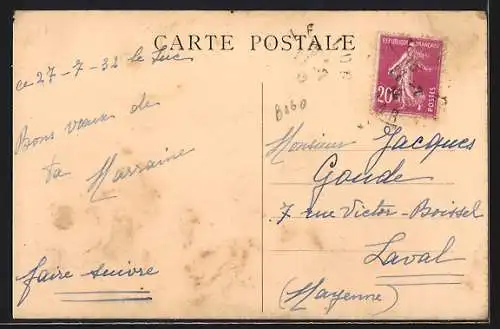 CARTE POSTALE
ce 27-7-32 le Luc
Bons vœux de
ta Marraine
faire suivre
REPUBLIQUE FRANÇAISE
20
POSTES
B860
Monsieur Jacques
Goude
7 rue Victor-Boissel
Laval
(Mayenne)